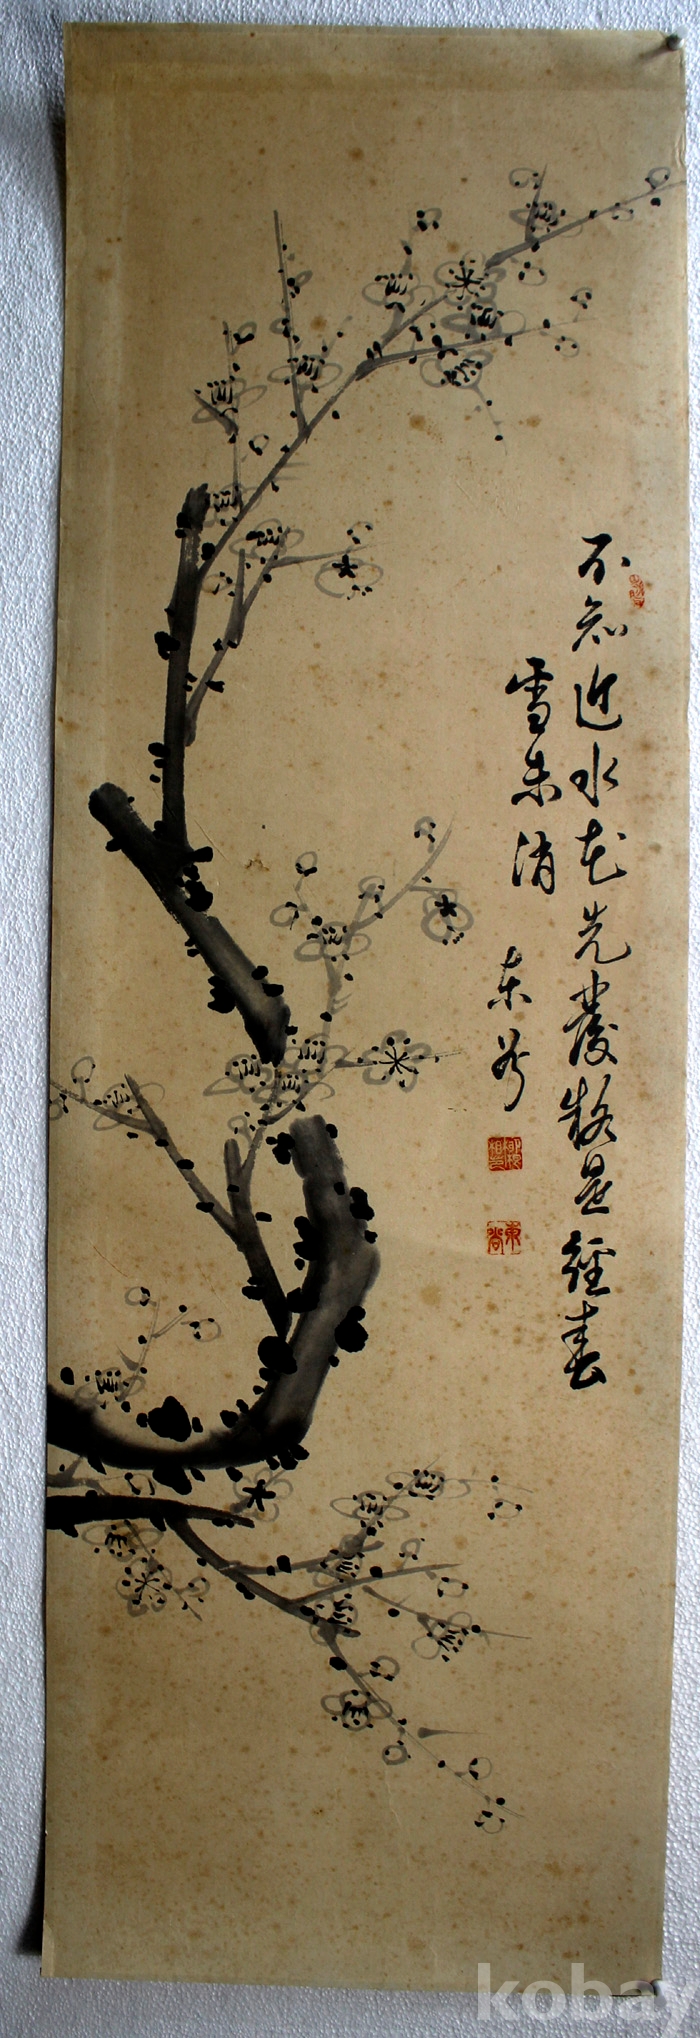 不知近水花先發疑是經春
雪未消
東谷
kobay